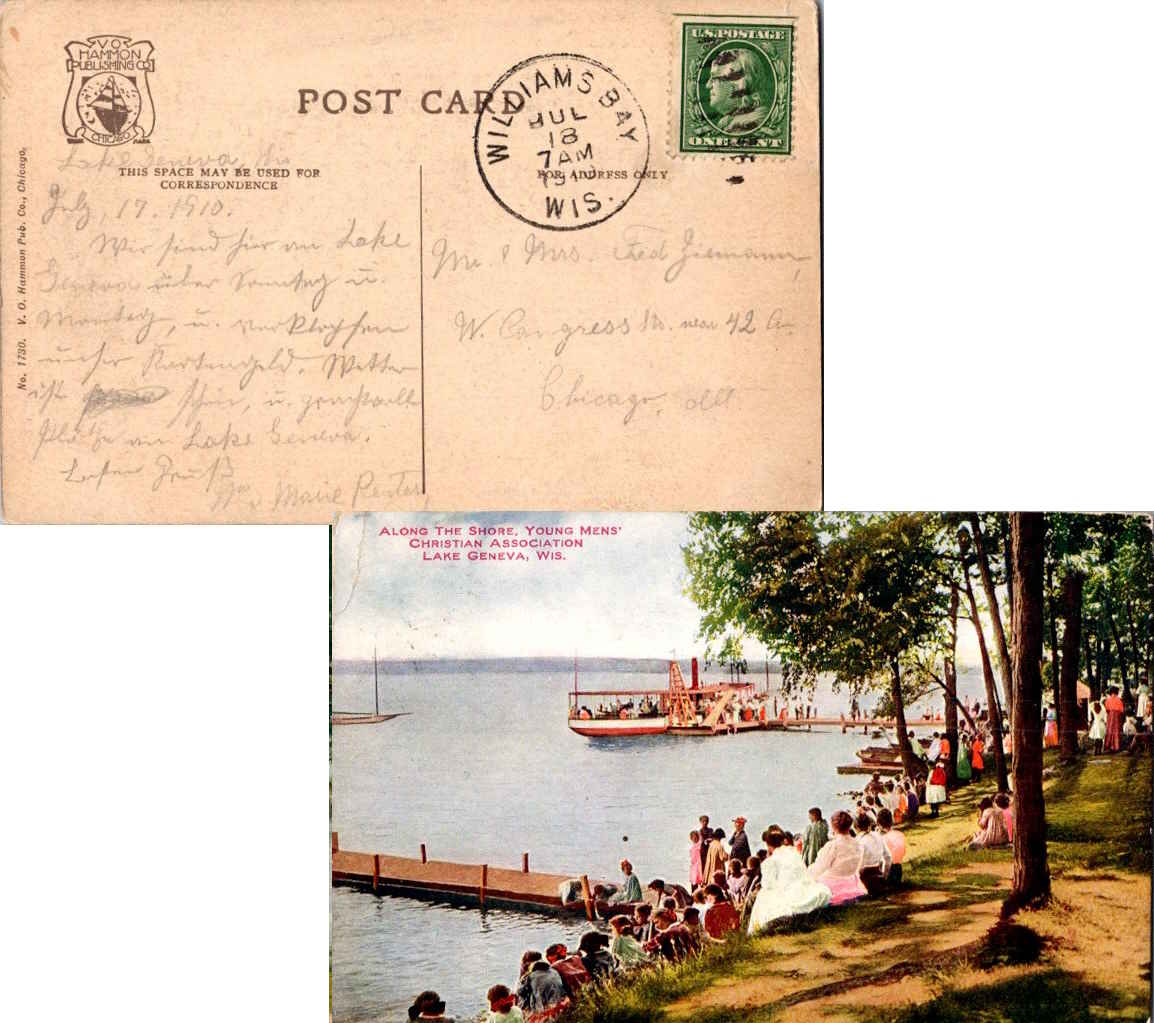 V.O.
HAMMON
PUBLISHING CO
CHICAGO
POST CARD
WILLIAMS BAY
JUL
18
7 AM
1910
WIS.
U.S. POSTAGE
ONE CENT
THIS SPACE MAY BE USED FOR
CORRESPONDENCE
FOR ADDRESS ONLY
No. 1730. V. O. Hammon Pub. Co., Chicago.
Lake Geneva,
July, 17. 1910.
Wir sind hier an Lake
Geneva über Sonntag u.
Montag, u. verklopfen
unser Kartengeld. Wetter
ist schön, u. prachtvolle
Plätze am Lake Geneva.
Besten Gruß
Marie Reuter
Mr. & Mrs. Fred Ziemann,
W. Congress St. near 42 A
Chicago, Ill
ALONG THE SHORE, YOUNG MENS'
CHRISTIAN ASSOCIATION
LAKE GENEVA, WIS.